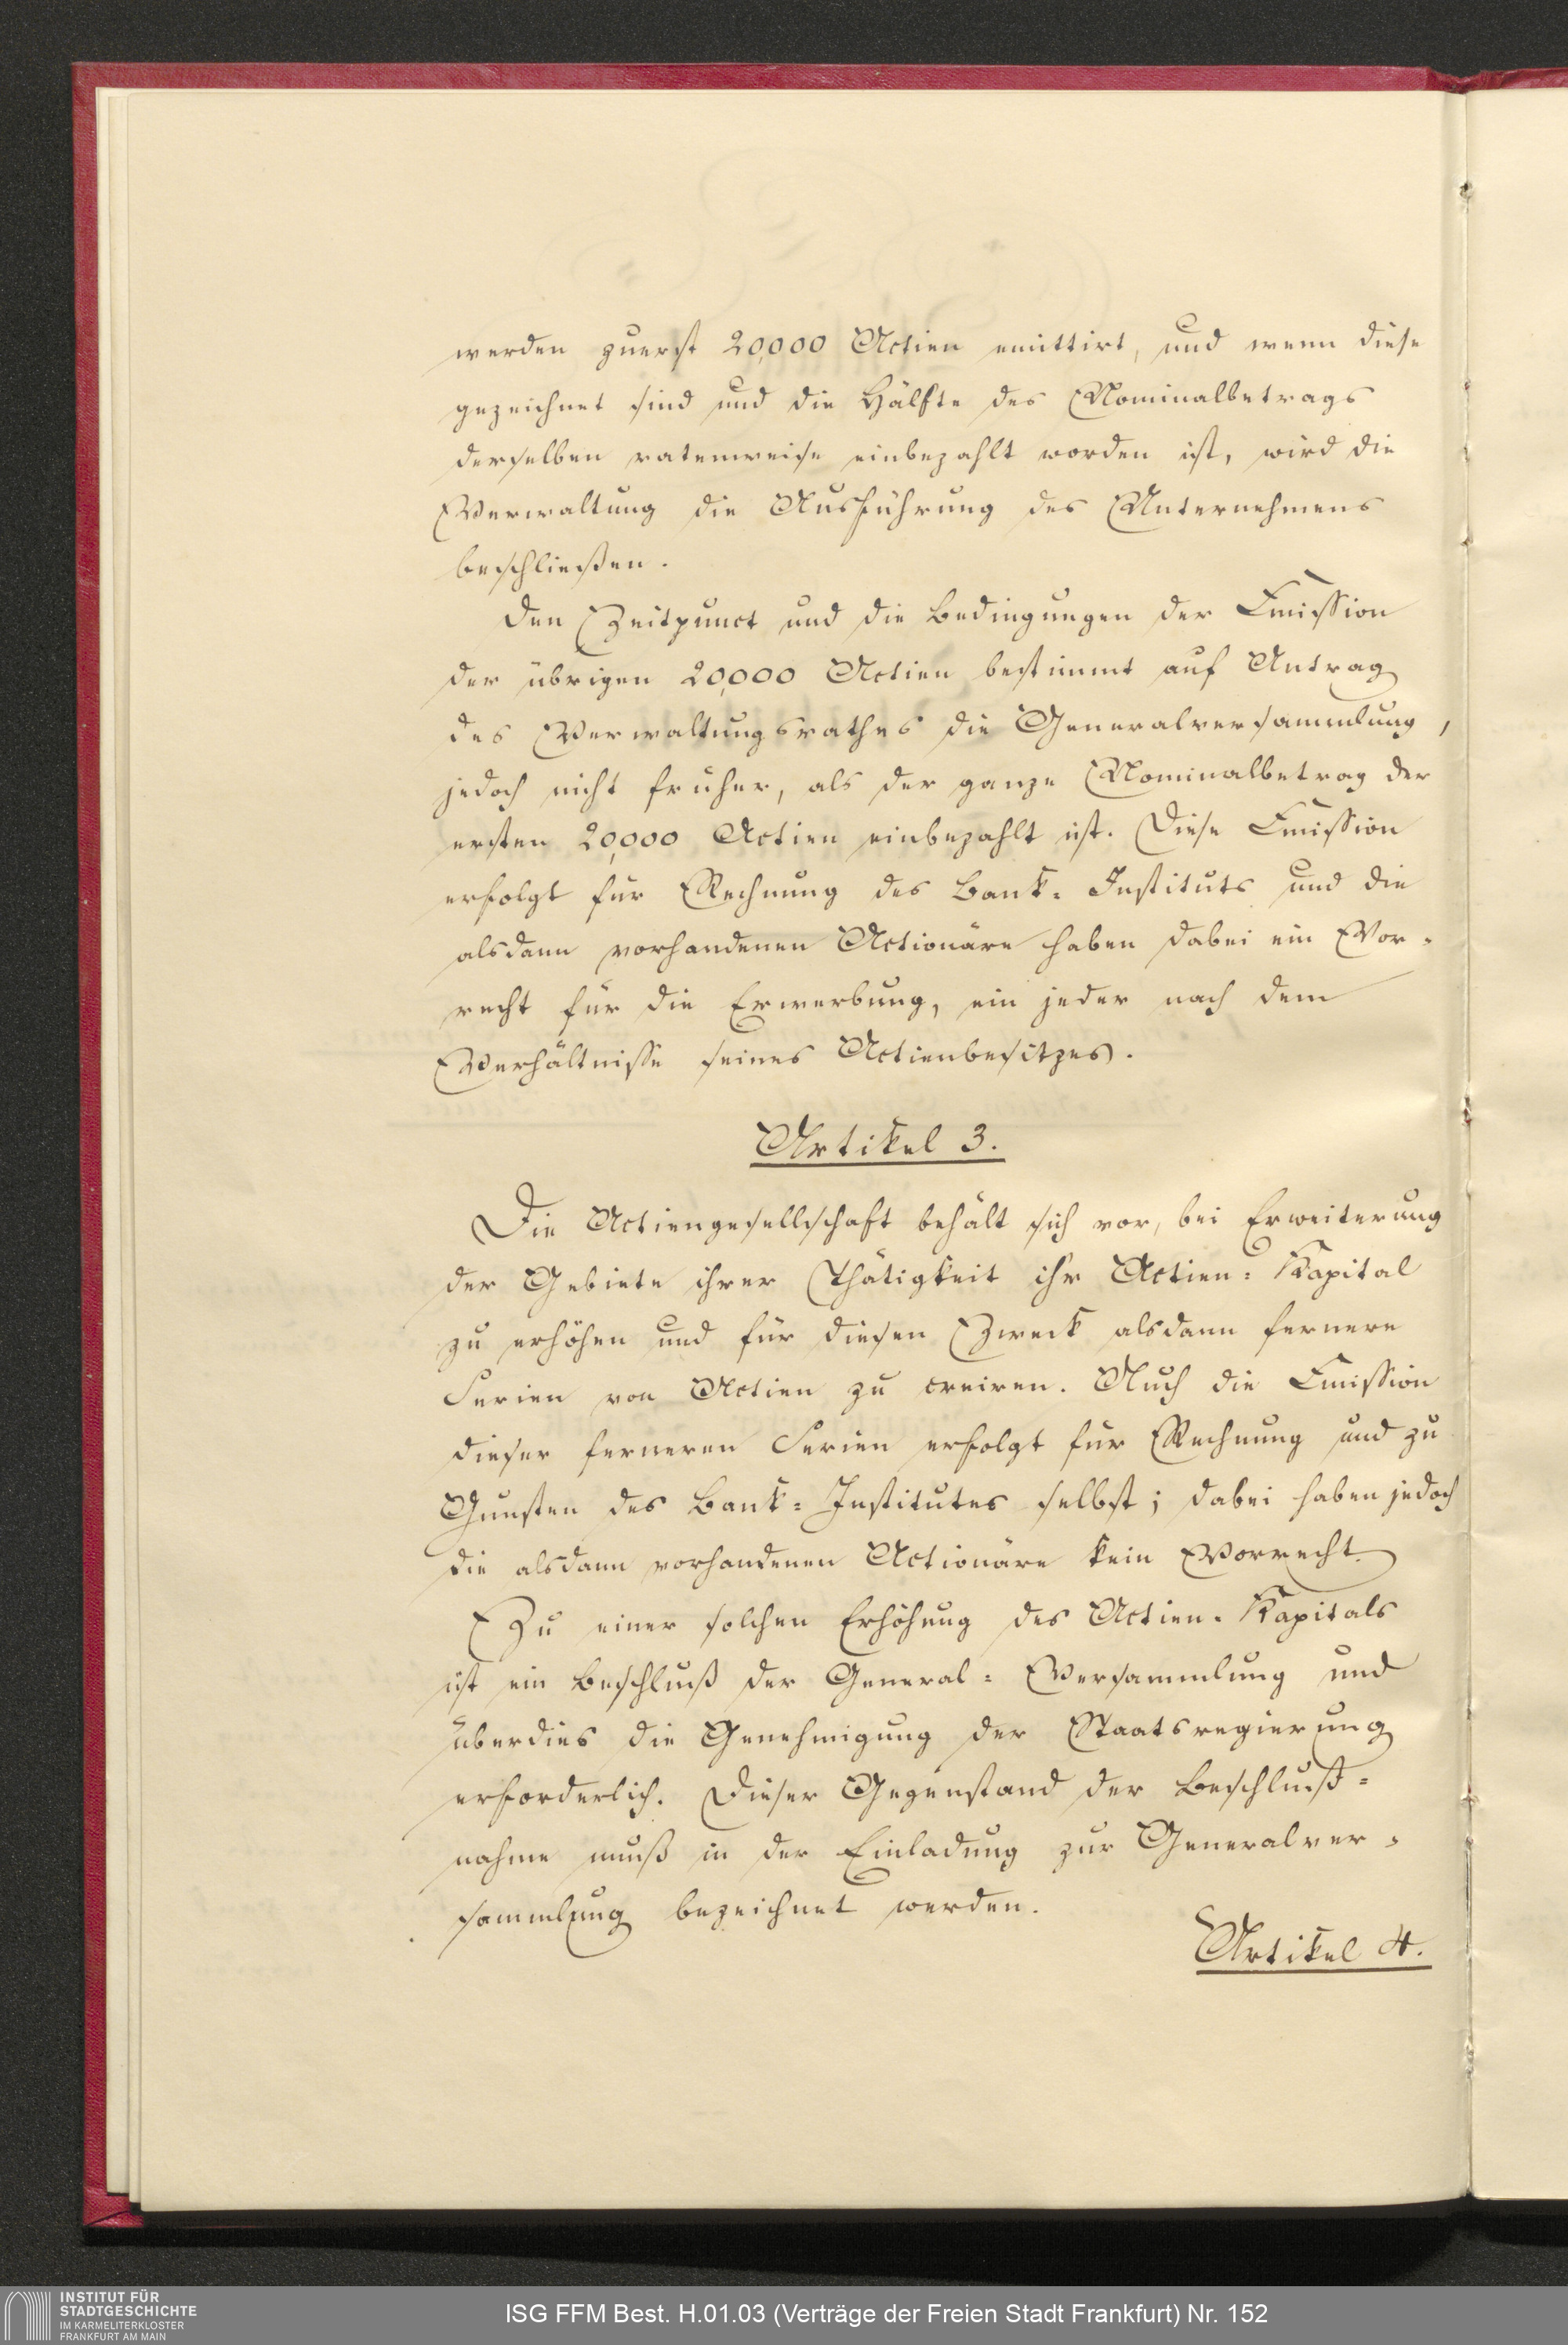 werden zuerst 20,000 Actien emittirt, und wenn diese
gezeichnet sind und die Hälfte des Nominalbetrags
derselben ratenweise einbezahlt worden ist, wird die
Verwaltung die Ausführung des Unternehmens
beschließen.
Den Zeitpunct und die Bedingungen der Emission
der übrigen 20,000 Actien bestimmt auf Antrag
des Verwaltungsrathes die Generalversammlung,
jedoch nicht früher, als der ganze Nominalbetrag der
ersten 20,000 Actien einbezahlt ist. Diese Emission
erfolgt für Rechnung des Bank-Instituts und die
alsdann vorhandenen Actionäre haben dabei ein Vor-
recht für die Erwerbung, ein jeder nach dem
Verhältnisse seines Actienbesitzes.
Artikel 3.
Die Actiengesellschaft behält sich vor, bei Erweiterung
der Gebiete ihrer Thätigkeit ihr Actien-Kapital
zu erhöhen und für diesen Zweck alsdann fernere
Serien von Actien zu creiren. Auch die Emission
dieser ferneren Serien erfolgt für Rechnung und zu
Gunsten des Bank-Institutes selbst; dabei haben jedoch
die alsdann vorhandenen Actionäre kein Vorrecht.
Zu einer solchen Erhöhung des Actien-Kapitals
ist ein Beschluß der General-Versammlung und
überdies die Genehmigung der Staatsregierung
erforderlich. Dieser Gegenstand der Beschluß-
nahme muß in der Einladung zur Generalver-
sammlung bezeichnet werden.
Artikel 4.
INSTITUT FÜR
STADTGESCHICHTE
IM KARMELITERKLOSTER
FRANKFURT AM MAIN
ISG FFM Best. H.01.03 (Verträge der Freien Stadt Frankfurt) Nr. 152